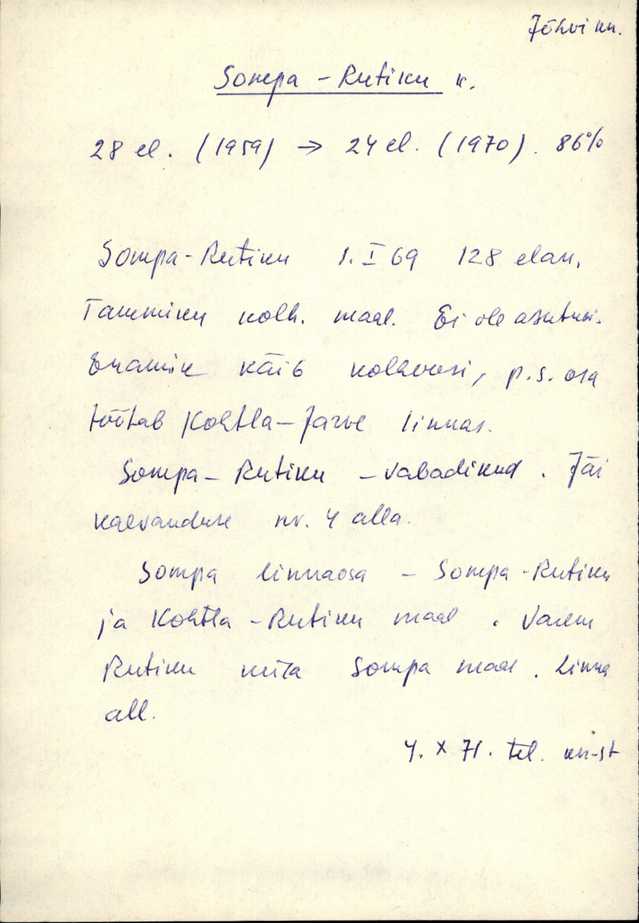 Jõhvi kn.
Sompa - Rutiku k.
28 el. (1959) → 24 el. (1970). 86%
Sompa-Rutiku 1. I 69 128 elan,
Tammiku kolh. maal. Ei ole asutusi.
Enamik käib kolhoosi, p.s. osa
töötab Kohtla-Järve linnas.
Sompa - Rutiku - vabadikud. Jäi
kaevanduse nr. 4 alla.
Sompa linnaosa - Sompa-Rutiku
ja Kohtla-Rutiku maal. Varem
Rutiku küla Sompa maal. Linna
all.
4. X 71. tel. kn-st